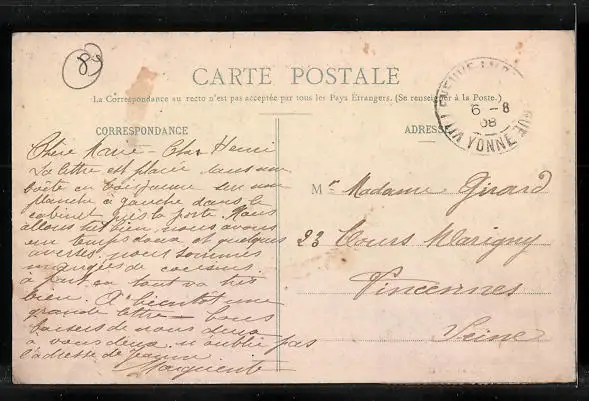 83
CARTE POSTALE
La Correspondance au recto n'est pas acceptée par tous les Pays Étrangers. (Se renseigner à la Poste.)
CORRESPONDANCE
ADRESSE
VILLENEUVE YONNE
6 - 8
08
Chère Marie - Cher Henri
La lettre est placée dans une
boîte en sur une
planche à gauche dans le
cabinet près la porte. Nous
allons très bien, nous avons
un temps doux et quelques
averses, nous sommes
mangées de cousins,
à part ça tout va très
bien. A bientôt une
grande lettre - bons
baisers de nous deux
à vous deux, n'oublie pas
l'adresse de
Marguerite
M Madame Girard
23 Cours Marigny
Vincennes
Seine